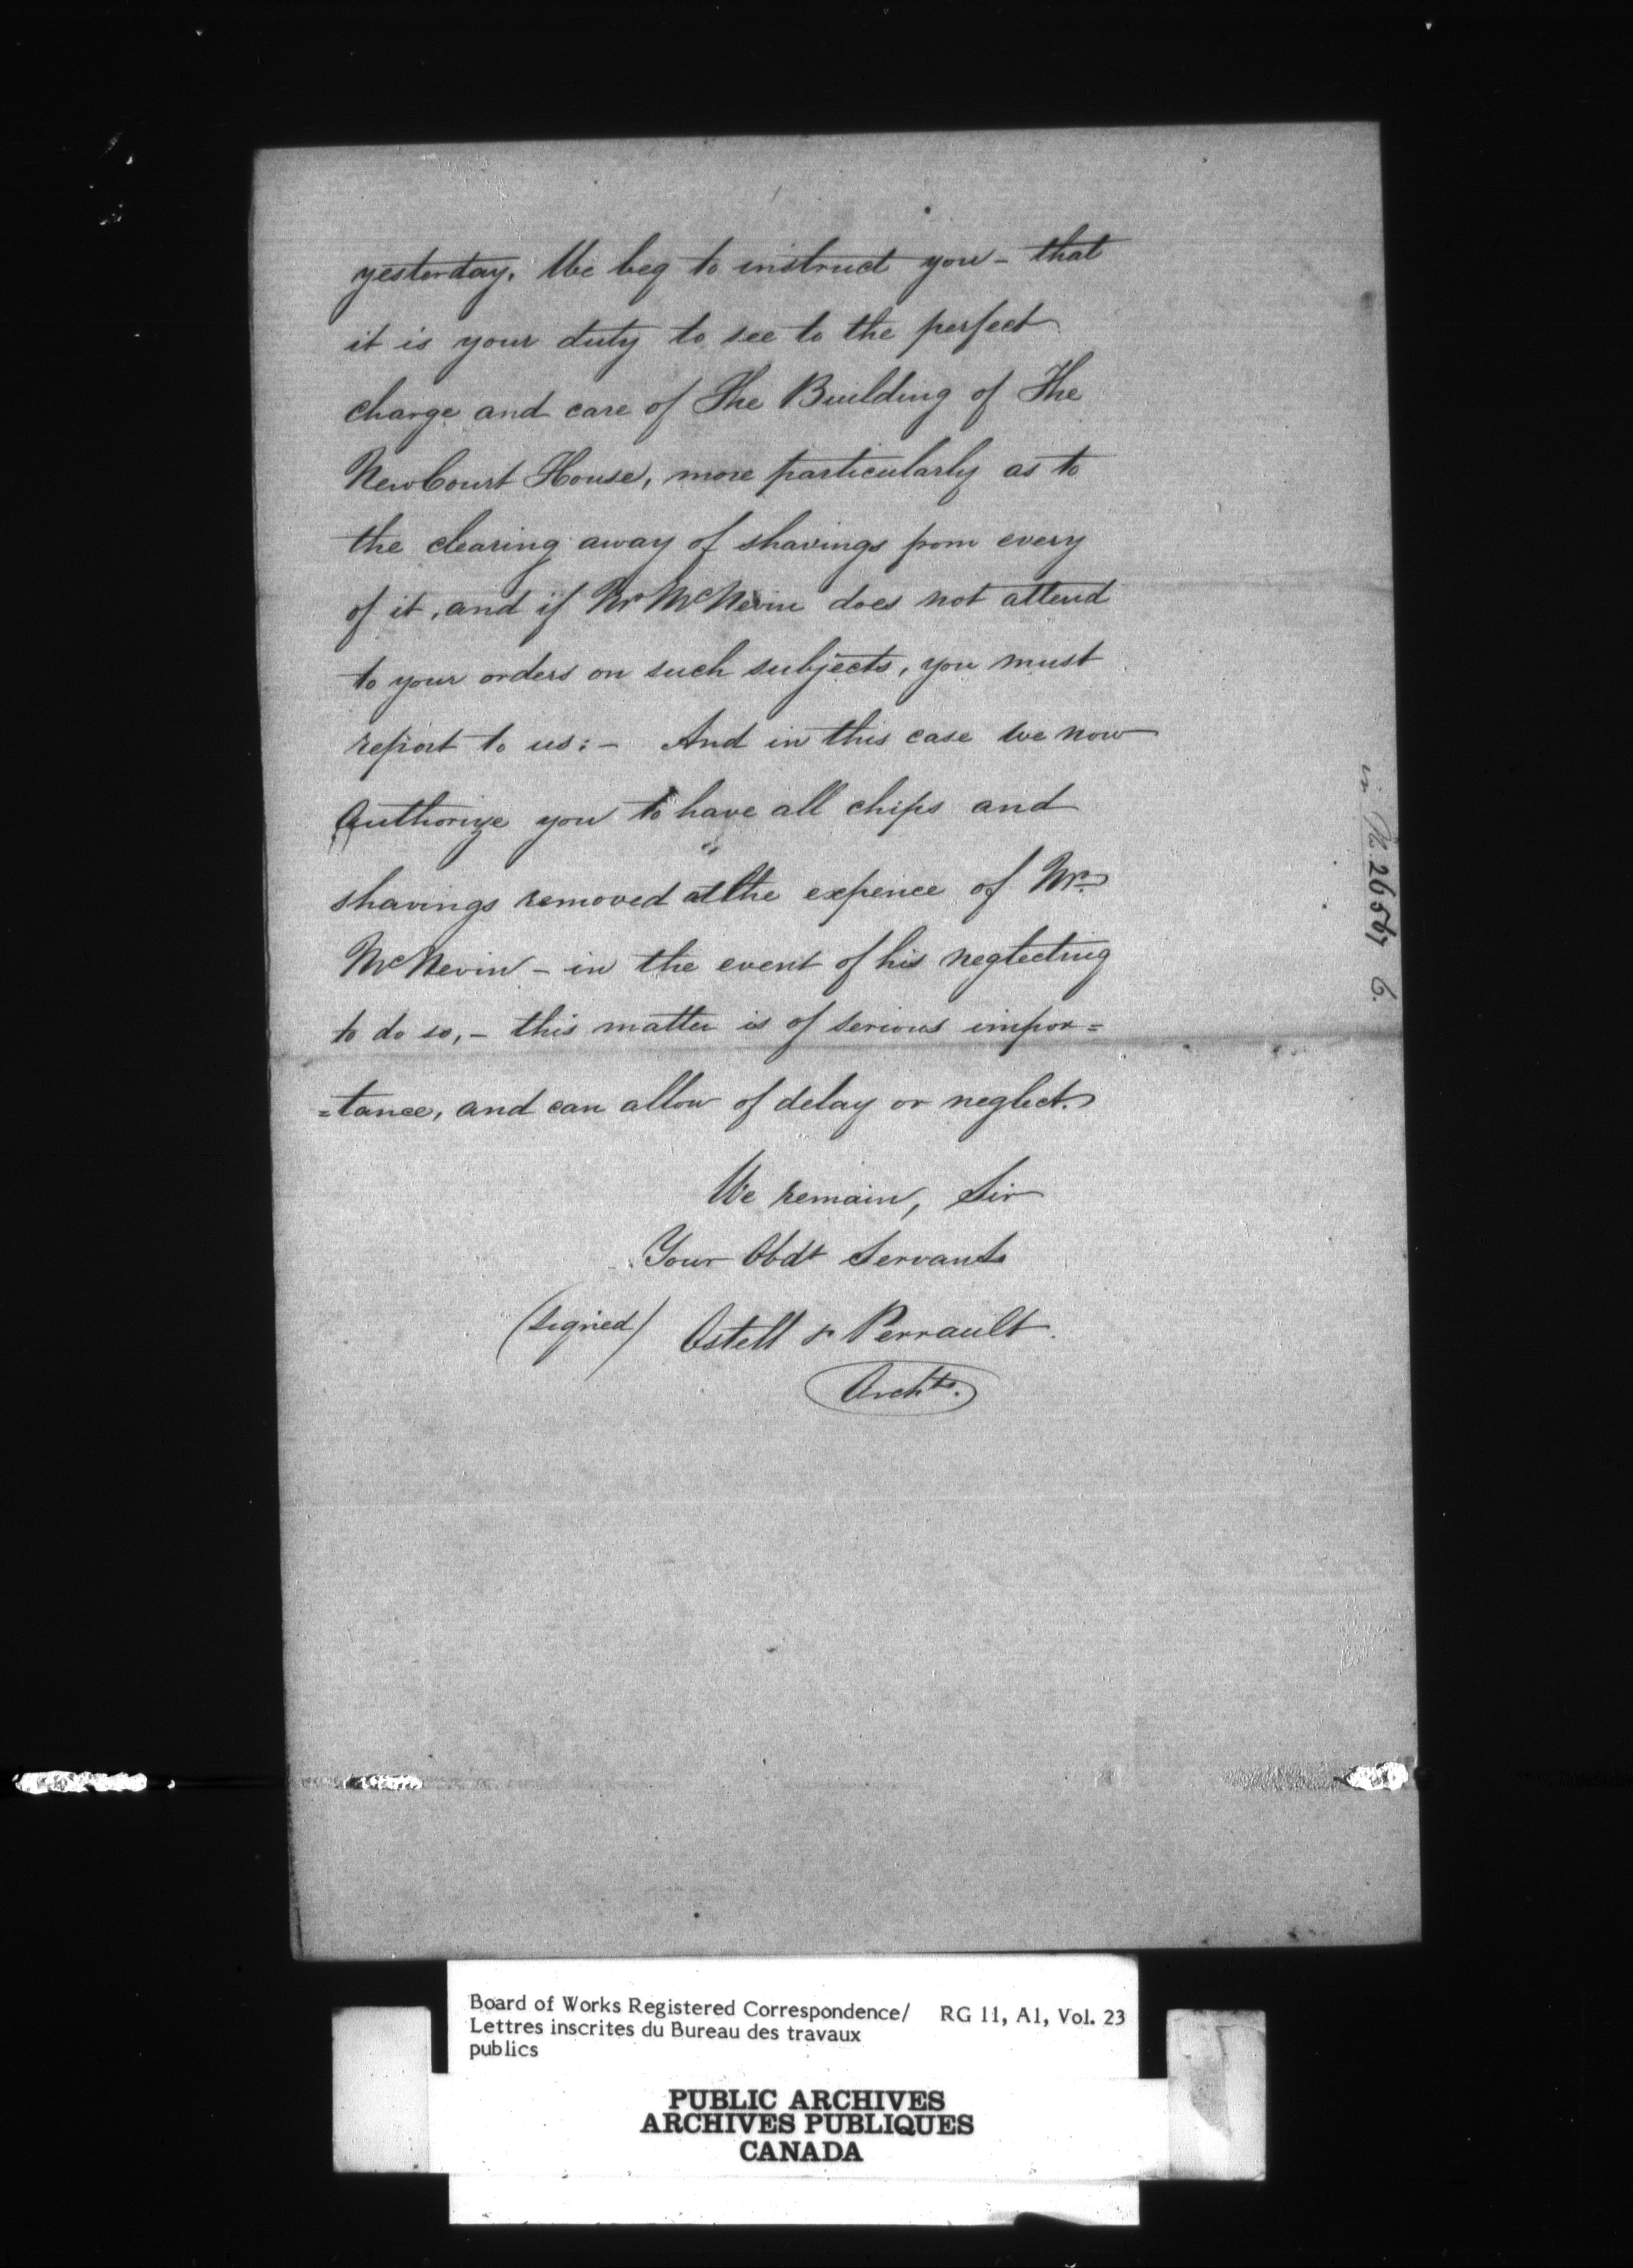 yesterday. We beg to instruct you - that
it is your duty to see to the perfect
charge and care of The Building of The
New Court House, more particularly as to
the clearing away of shavings from every
of it, and if Mr McNevin does not attend
to your orders on such subjects, you must
report to us:- And in this case we now
Authorize you to have all chips and
shavings removed at the expence of Mr.
McNevin - in the event of his neglecting
to do so, - this matter is of serious impor=
=tance, and can allow of delay or neglect.
We remain, Sir
Your Obdt Servants
(Signed) Ostell & Perrault.
Archts.
in No. 26567 6.
Board of Works Registered Correspondence/ RG 11, A1, Vol. 23
Lettres inscrites du Bureau des travaux
publics
PUBLIC ARCHIVES
ARCHIVES PUBLIQUES
CANADA